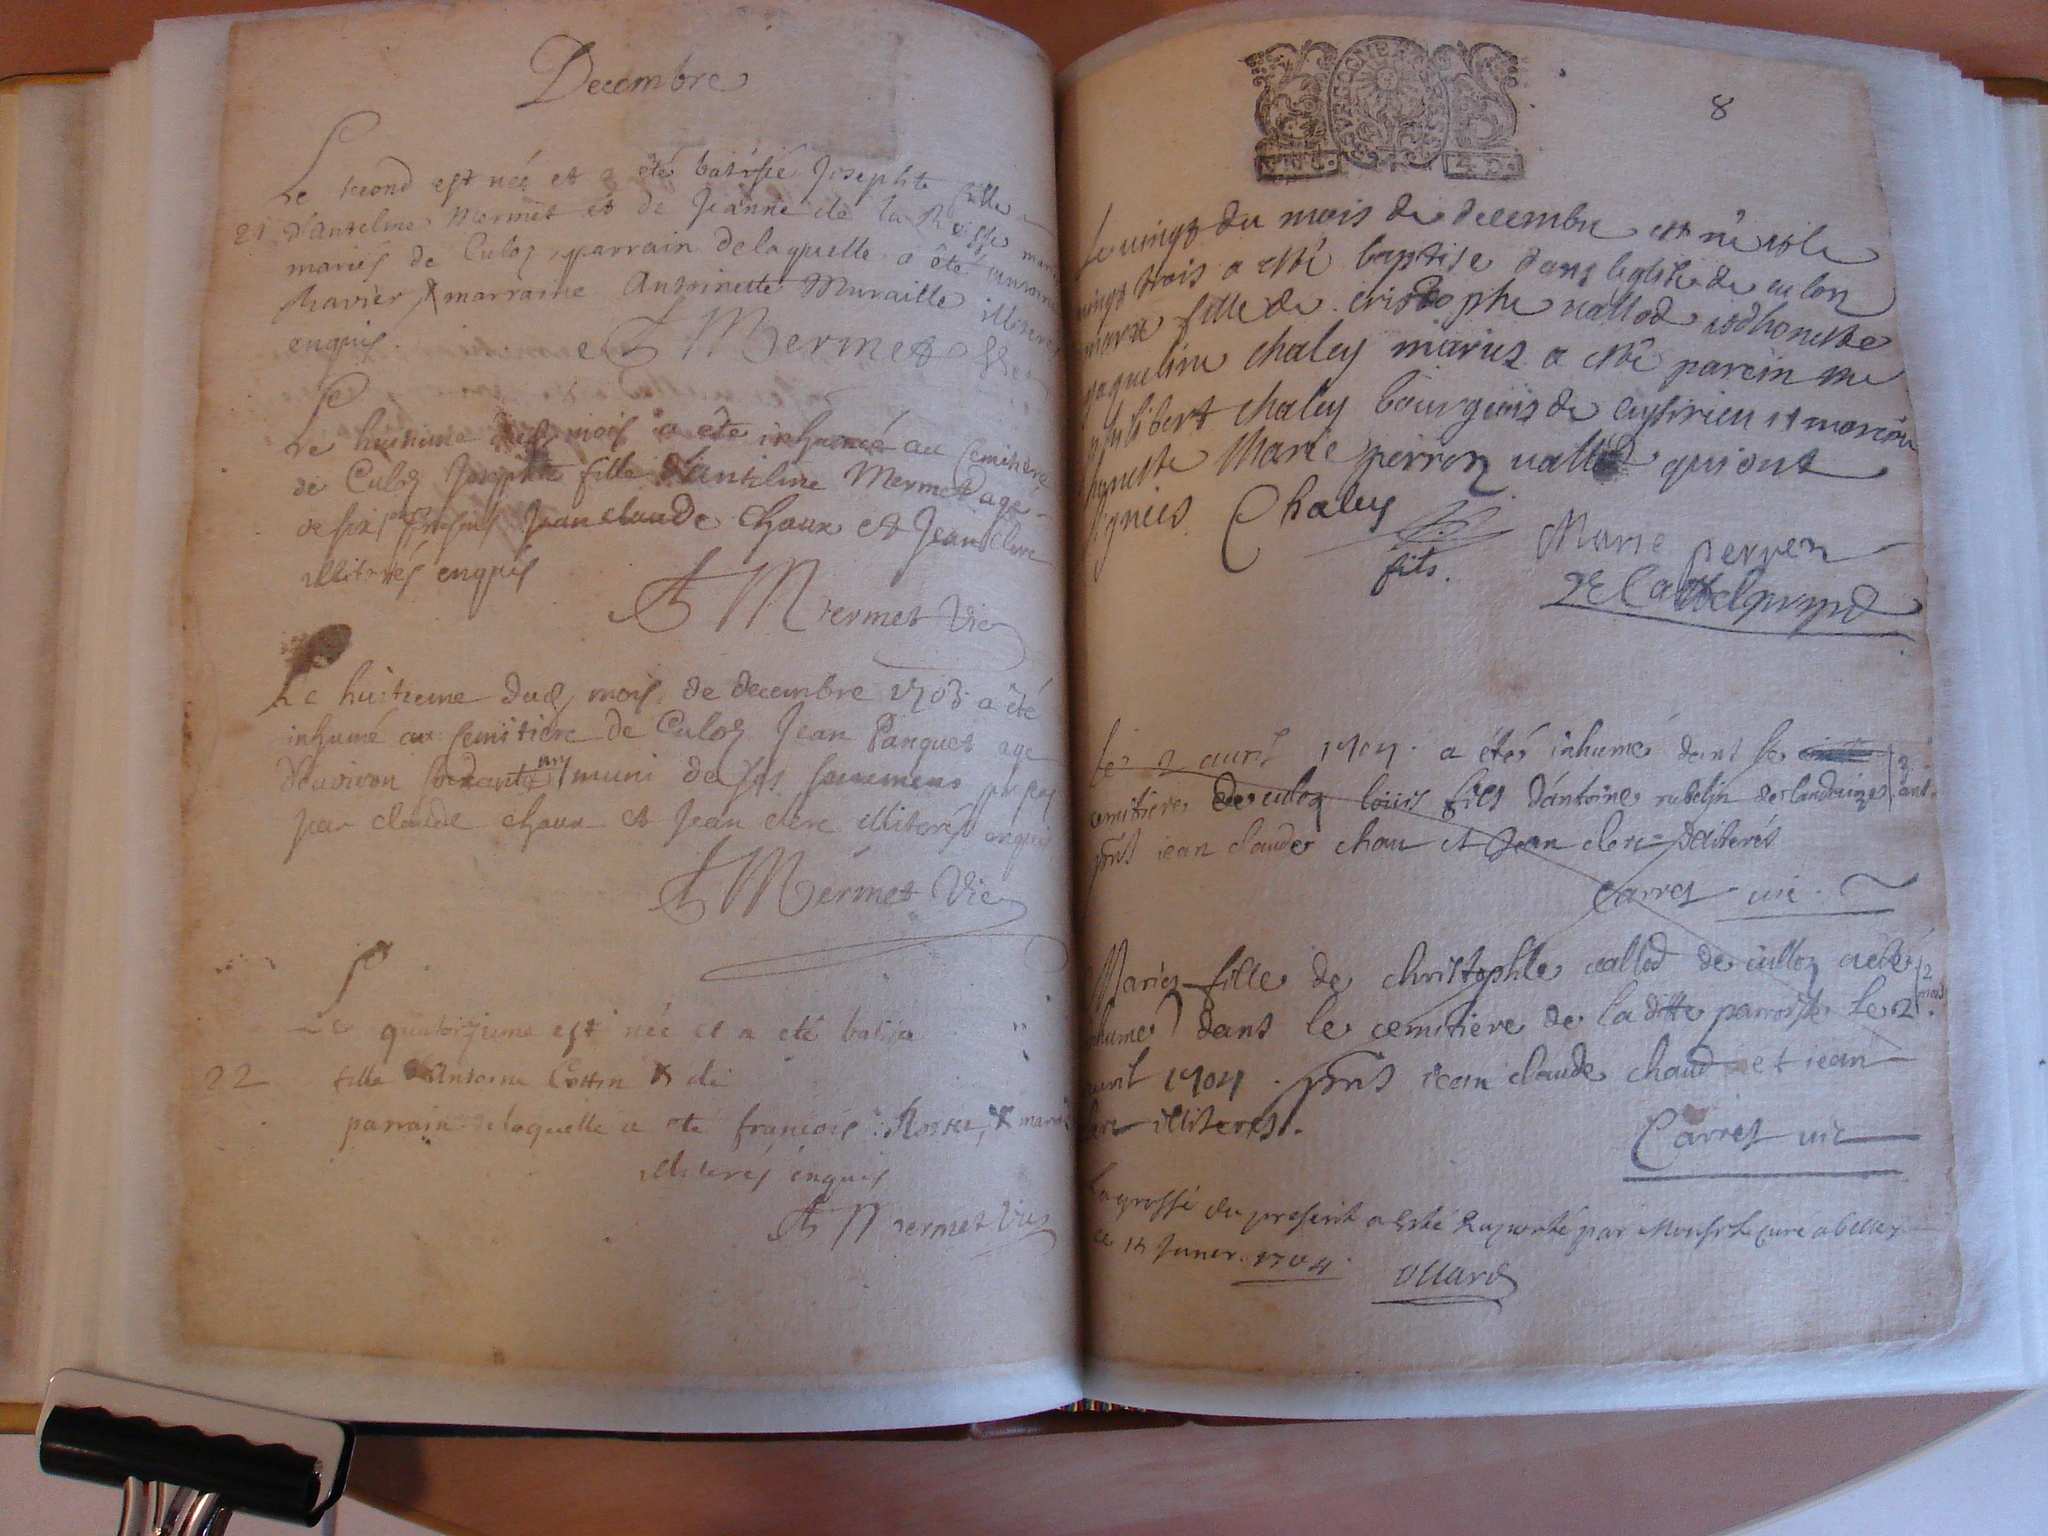 Decembre
Le second est née et a été batisée Josephte fille
21 d'Antelme Mermet et de Jeanne de la Rousse
mariés de Culoz, parrain de laquelle a été
Ravier, & marraine Antoinette Muraille illiterés
enquis.
Mermet Vic
Le huitieme dud mois a été inhumé au semitiere
de Culoz Josephte fille d'Antelme Mermet agé
de six presens Jean claude Chaux et Jean Clerc
illiterés enquis
Mermet Vic
Le huitieme dud mois de decembre 1703 a été
inhumé au semitiere de Culoz Jean Panquet agé
d'environ muni de ses
par claude chaux et Jean clerc illiterés enquis
Mermet Vic
Le quatorzieme est née et a été batisée
22 fille d'Antoine Cottin & de
parrain de laquelle a été françois Rosset, &
illiterés enquis
Mermet Vic
8
Le vingt du mois de decembre est né et le
vingt trois a esté baptisé dans leglise de culoz
marie fille de cristophe vallod et dhoneste
jaqueline chaley mariez a esté parein
philibert chaley bourgeois de et
honeste Marie perron vallod qui ont
signés Chaley
fils. Marie perren
Le 2 avril 1704 a étés inhumé dant le
cemitiere de culoz louis fils d'antoine de 3 ans
pnts iean claude chau et Jean clerc illiterés
Carret vic.
Marie fille de christophle vallod de culloz a été 2 mois
inhumé dans le cemitiere de laditte parroisse le 2
avril 1704. pnts iean claude chaud et iean
clerc illiterés.
Carret vic
La grosse du present a esté raporté par Monsr le curé a belley
ce 14 1704.